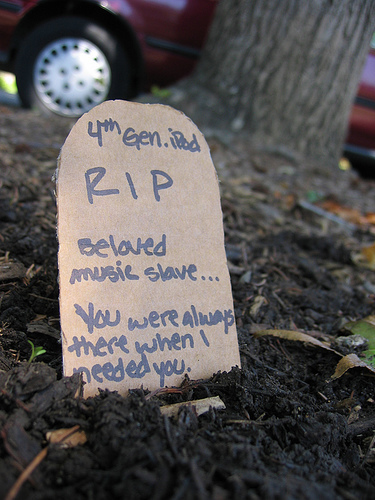 4th Gen. iPod
RIP
Beloved
music slave...
You were always
there when I
needed you.